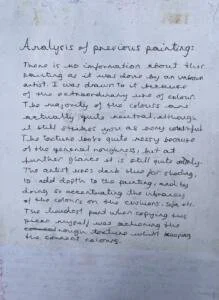 Analysis of previous painting:
There is no information about this
painting as it was done by an unknown
artist. I was drawn to it because
of the extraordinary use of colour.
The majority of the colours are
actually quite neutral, although
it still strikes you as very colorful.
The texture looks quite messy because
of the general roughness, but at
further glance it is still quite
The artist uses dark blue for shading,
to add depth to the painting, and by
doing so accentuating the vibrancy
of the colours on the cushions, sofa etc.
The hardest part when copying this
piece myself was achieving the
rough texture whilst keeping
the correct colours.